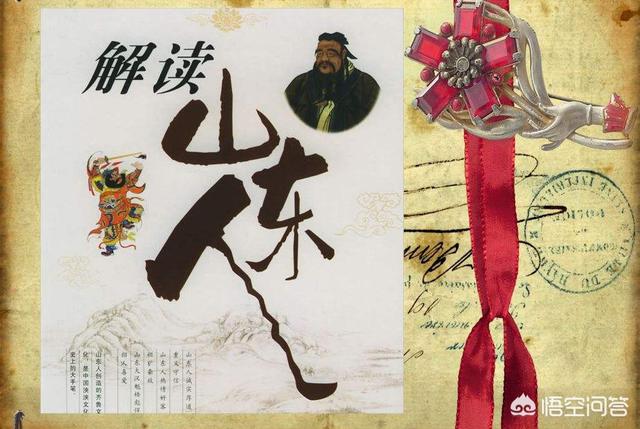 解读
山东人
山东人诚实厚道
重义守信
山东人热情好客
粗犷豪放
山东大汉魁梧彪悍
招人喜爱
山东人创造的齐鲁文
化，是中国泱泱文化
史上的大手笔。
POLICE
悟空问答